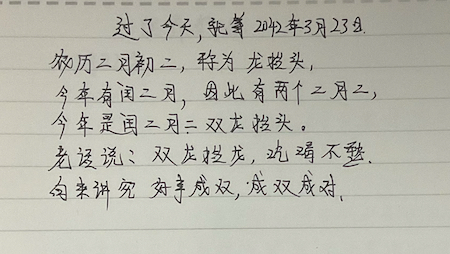 过了今天,就等2042年3月23日.
农历二月初二,称为龙抬头,
今年有闰二月,因此有两个二月二,
今年是闰二月二双龙抬头。
老话说:双龙抬龙,吃喝不愁.
向来讲究 好事成双,成双成对.